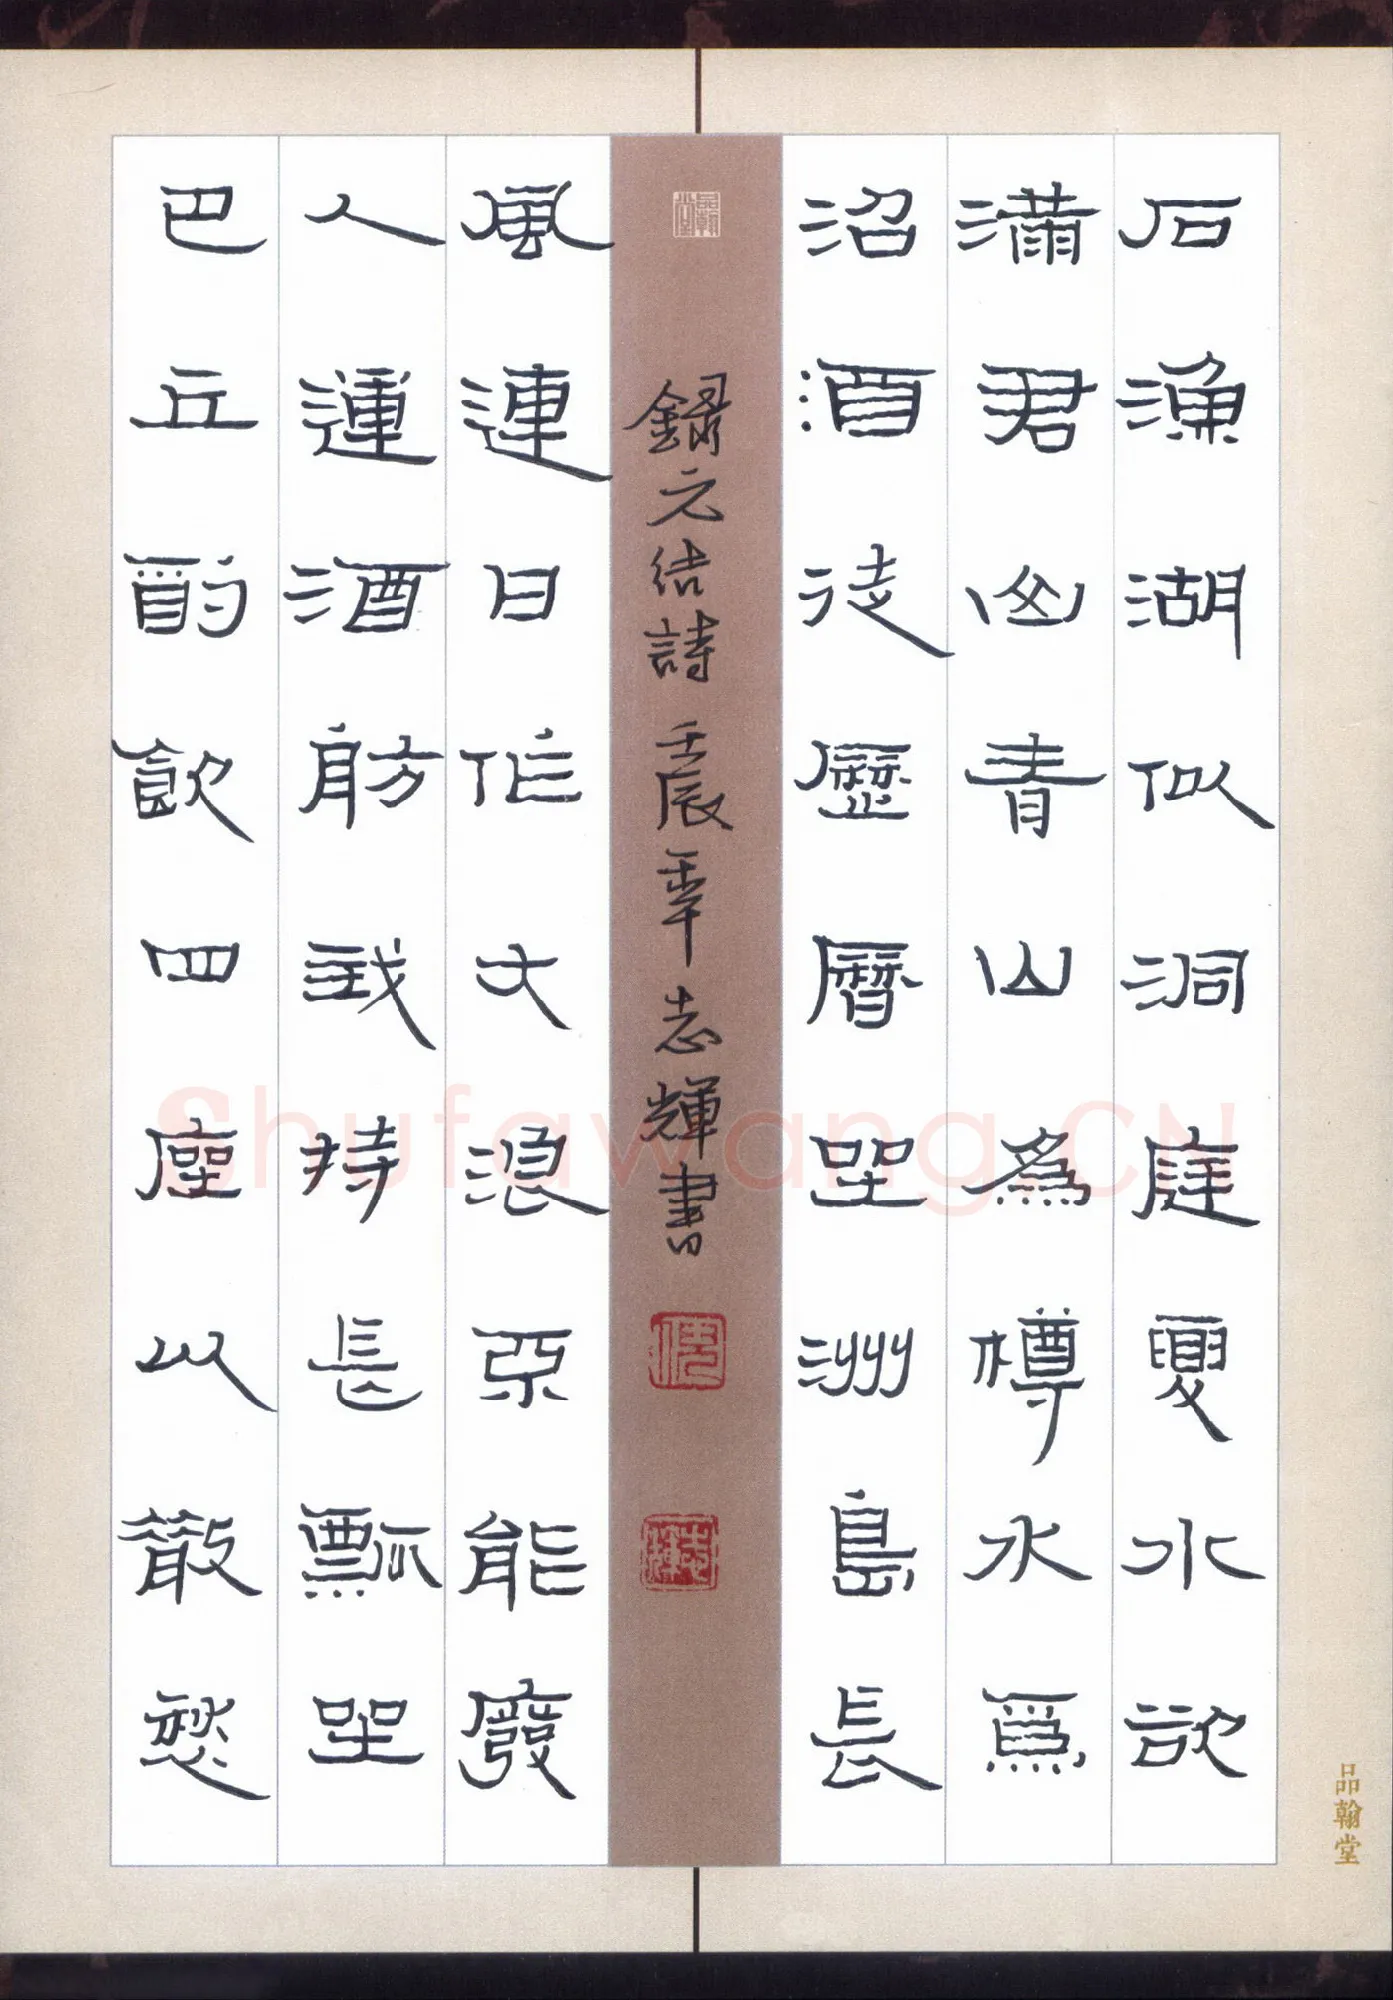 石漁湖似洞庭夏水欲
滿君凶青山為樽水爲
沼酒徒歷曆坐洲島長
風連日作大浪不能廢
人運酒舫我持長瓢坐
巴丘酌飲四座以散愁
錄元結詩 壬辰年志輝書
志輝
品翰堂
品翰堂
Shufawang.CN